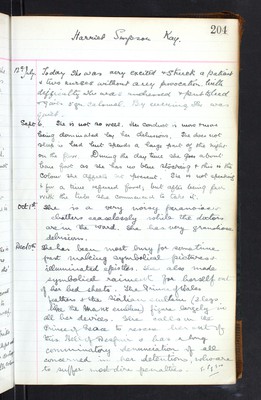 204
Harriet Simpson Kay.
13th July. Today she was very excited & struck a patient
& two nurses without any provocation. With
difficulty she was undressed & put to bed
By evening she was
quiet.
Sept 6. She is not so well. Her conduct is more or less
being dominated by her delusions. She does not
sleep in bed but spends a large part of the night
on the floor. During the day time she goes about
bare foot as she has no blue stockings & this is the
colour she affects at present. She is not speaking
& for a time refused food, but after being fed
with the tube she consented to take it.
Oct 1st She is a very noisy paranoiac
chatters ceaselessly while the doctors
are in the ward. She has very grandiose
delusions.
Dec 10th She has been most busy for some time
past making symbolical pictures &
illuminated epistles. She also made
symbolical raiment for herself out
of her bed sheets. The Prince of Wales
feathers & the Sicilian emblem (3 legs,
like the Manx emblem) figure largely in
all her devices. She calls on the
Prince of Peace to rescue her out of
this Hell of Despair & has a long
comminatory denunciation of all
concerned in her detention, who are
to suffer most dire penalties.